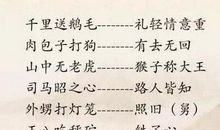 千里送鹅毛--------礼轻情意重
肉包子打狗--------有去无回
山中无老虎--------猴子称大王
司马昭之心--------路人皆知
外甥打灯笼--------照旧（舅）